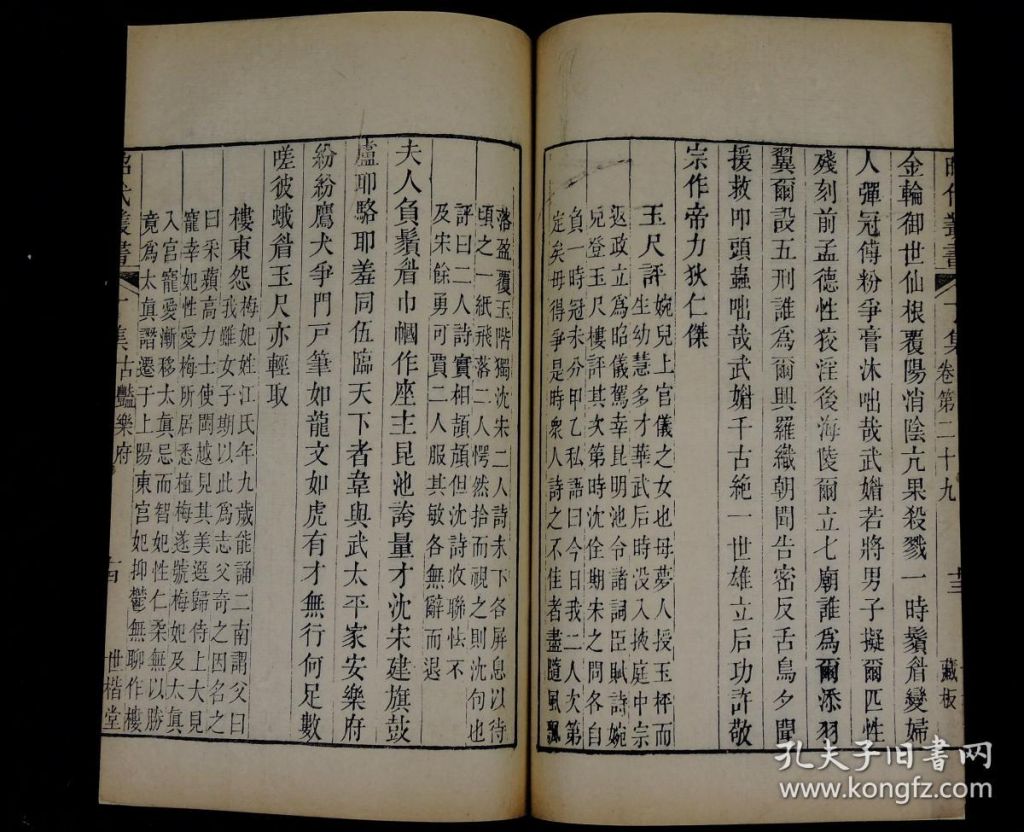 卷第二十九
藏板
金輪御世仙根覆陽消陰亢果殺戮一時鬚眉變婦
人彈冠傅粉爭膏沐咄哉武媚若將男子擬爾匹性
殘刻前孟德性狡淫後海陵爾立七廟誰為爾添羽
翼爾設五刑誰為爾興羅織朝聞告密反舌鳥夕聞
援救叩頭蟲咄哉武媚千古絶一世雄立后功許敬
宗作帝力狄仁傑
玉尺評
婉兒上官儀之女也母夢人授玉秤而
生幼慧多才華武后時没入掖庭中宗
返政立為昭儀駕幸昆明池令諸詞臣賦詩婉
兒登玉尺樓評其次第時沈佺期宋之問各自
負一時冠未分甲乙私語曰今日我二人次第
定矣毋得爭於是時衆人詩之不佳者盡隨風飄
落盈覆玉階獨沈宋二人詩未下各屏息以待
頃之一紙飛落二人愕然拾而視之則沈句也
評曰二人詩實相頡頏但沈詩收聯怯不
及宋餘勇可賈二人服其敏各無辭而退
夫人負鬚眉巾幗作座主昆池誇量才沈宋建旗鼓
盧耶駱耶羞同伍臨天下者韋與武太平家安樂府
紛紛鷹犬爭門戸筆如龍文如虎有才無行何足數
嗟彼蛾眉玉尺亦輕取
樓東怨
梅妃姓江氏年九歳能誦二南謂父曰
我雖女子期以此為志父奇之因名之
曰采蘋高力士使閩越見其美選歸侍上大見
寵幸妃性愛梅所居悉植梅遂號梅妃及太真
入宫寵愛漸移太真忌而智妃性仁柔無以勝
竟為太真譖遷于上陽東宫妃抑鬱無聊作樓
昭代叢書
丁集古豔樂府
世楷堂
孔夫子旧書网
kongfz.com